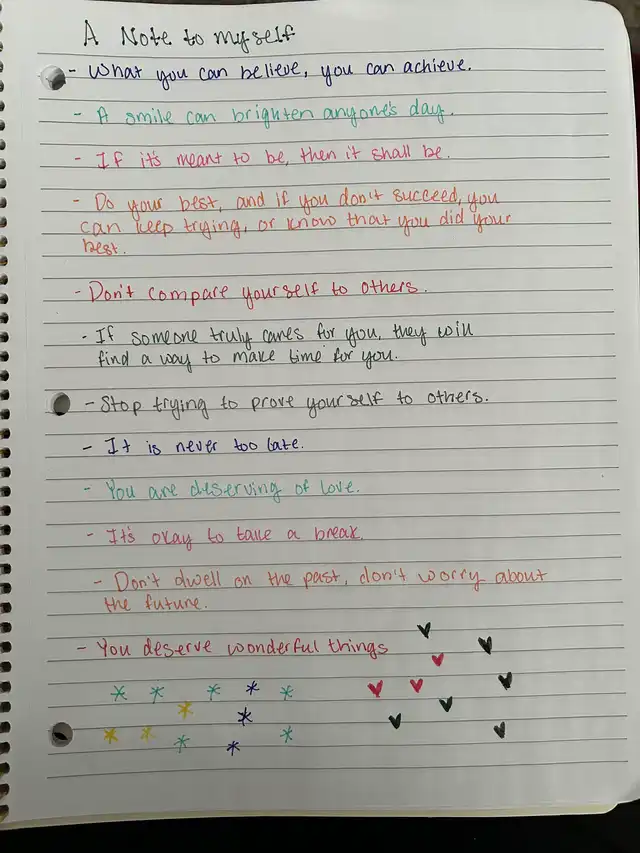 A Note to myself
- What you can believe, you can achieve.
- A smile can brighten anyone's day.
- If it's meant to be, then it shall be.
- Do your best, and if you don't succeed, you
can keep trying, or know that you did your
best.
- Don't compare yourself to others.
- If someone truly cares for you, they will
find a way to make time for you.
- Stop trying to prove yourself to others.
- It is never too late.
- You are deserving of love.
- It's okay to take a break.
- Don't dwell on the past, don't worry about
the future.
- You deserve wonderful things